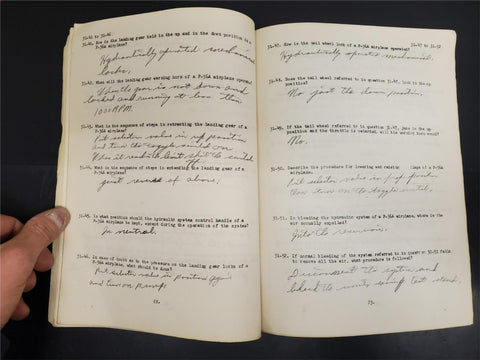 31-41 to 31-46
31-41. How is the landing gear held in the up and in the down position in a
P-36A airplane?
Hydraulically operated mechanical
locks.
31-42. When will the landing gear warning horn of a P-36A airplane operate?
When the gear is not down and
locked and running at less than
1000 RPM.
31-43. What is the sequence of steps in retracting the landing gear of a
P-36A airplane?
Put selector valve in up position
and turn the toggle switch on
When it reads to limit shut the switch
31-44. What is the sequence of steps in extending the landing gear of a
P-36A airplane?
just reverse of above.
31-45. In what position should the hydraulic system control handle of a
P-36A airplane be kept, except during the operation of the system?
In neutral
31-46. In case of doubt as to the pressure on the landing gear locks of a
P-36A airplane, what should be done?
Put selector valve in position again
and turn on pump
31-47 to 31-52
31-47. How is the tail wheel lock of a P-36A airplane operated?
Hydraulically operated mechanical.
31-48. Does the tail wheel referred to in question 31-47. lock in the up
position?
No just the down position.
31-49. If the tail wheel referred to in question 31-47. jams in the up
position and the throttle is retarded, will the warning horn blow?
No.
31-50. Describe the procedure for lowering and raising flaps of a
P-36A airplane.
Put selector valve in up position
then turn on the toggle switch.
31-51. In bleeding the hydraulic system of a P-36A airplane, where is the
air usually expelled?
Into the reservoir.
31-52. If normal bleeding of the system referred to in question 31-51 fails
to remove all the air, what procedure is followed?
Disconnect the system and
check the units using test stand.
73.